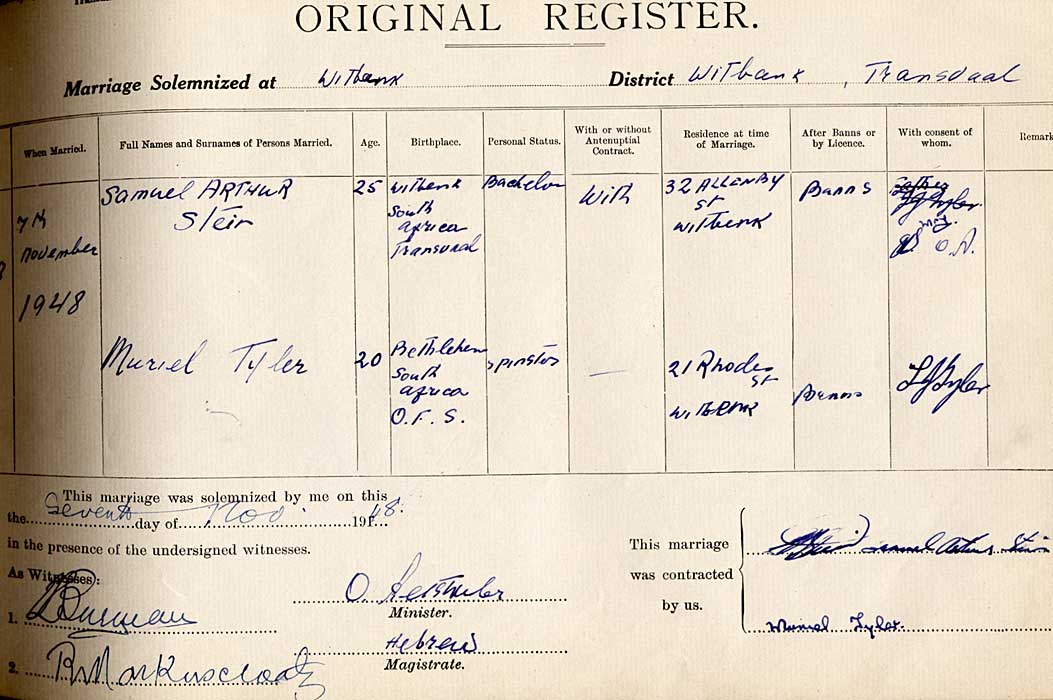 ORIGINAL REGISTER.
Marriage Solemnized at Witbank District Witbank, Transvaal
When Married. Full Names and Surnames of Persons Married. Age. Birthplace. Personal Status. With or without Antenuptial Contract. Residence at time of Marriage. After Banns or by Licence. With consent of whom. Remark
7th November 1948
Samuel ARTHUR Stein
25
Witbank South Africa Transvaal
Bachelor
With
32 ALLENBY St Witbank
Banns
Muriel Tyler
20
Bethlehem South Africa O.F.S.
spinster
—
21 Rhodes St Witbank
Banns
This marriage was solemnized by me on this
the Seventh day of Nov. 1948.
in the presence of the undersigned witnesses.
As Witnesses:
1.
2.
Minister.
Hebrew
Magistrate.
This marriage
was contracted
by us.
Samuel Arthur Stein
Muriel Tyler.